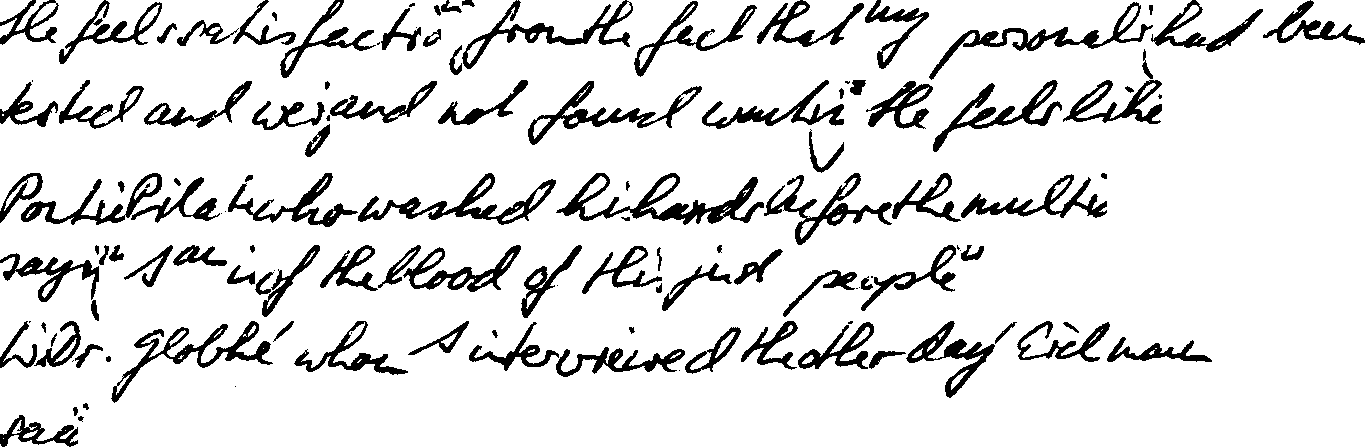 He feels satisfaction from the fact that "my personality had been
tested and weighed and not found wanting" He feels like
Pontius Pilate who washed his hands before the multitude
saying "I am innocent of the blood of this just people"
Dr. Globke whom I interviewed the other day Eichmann
said